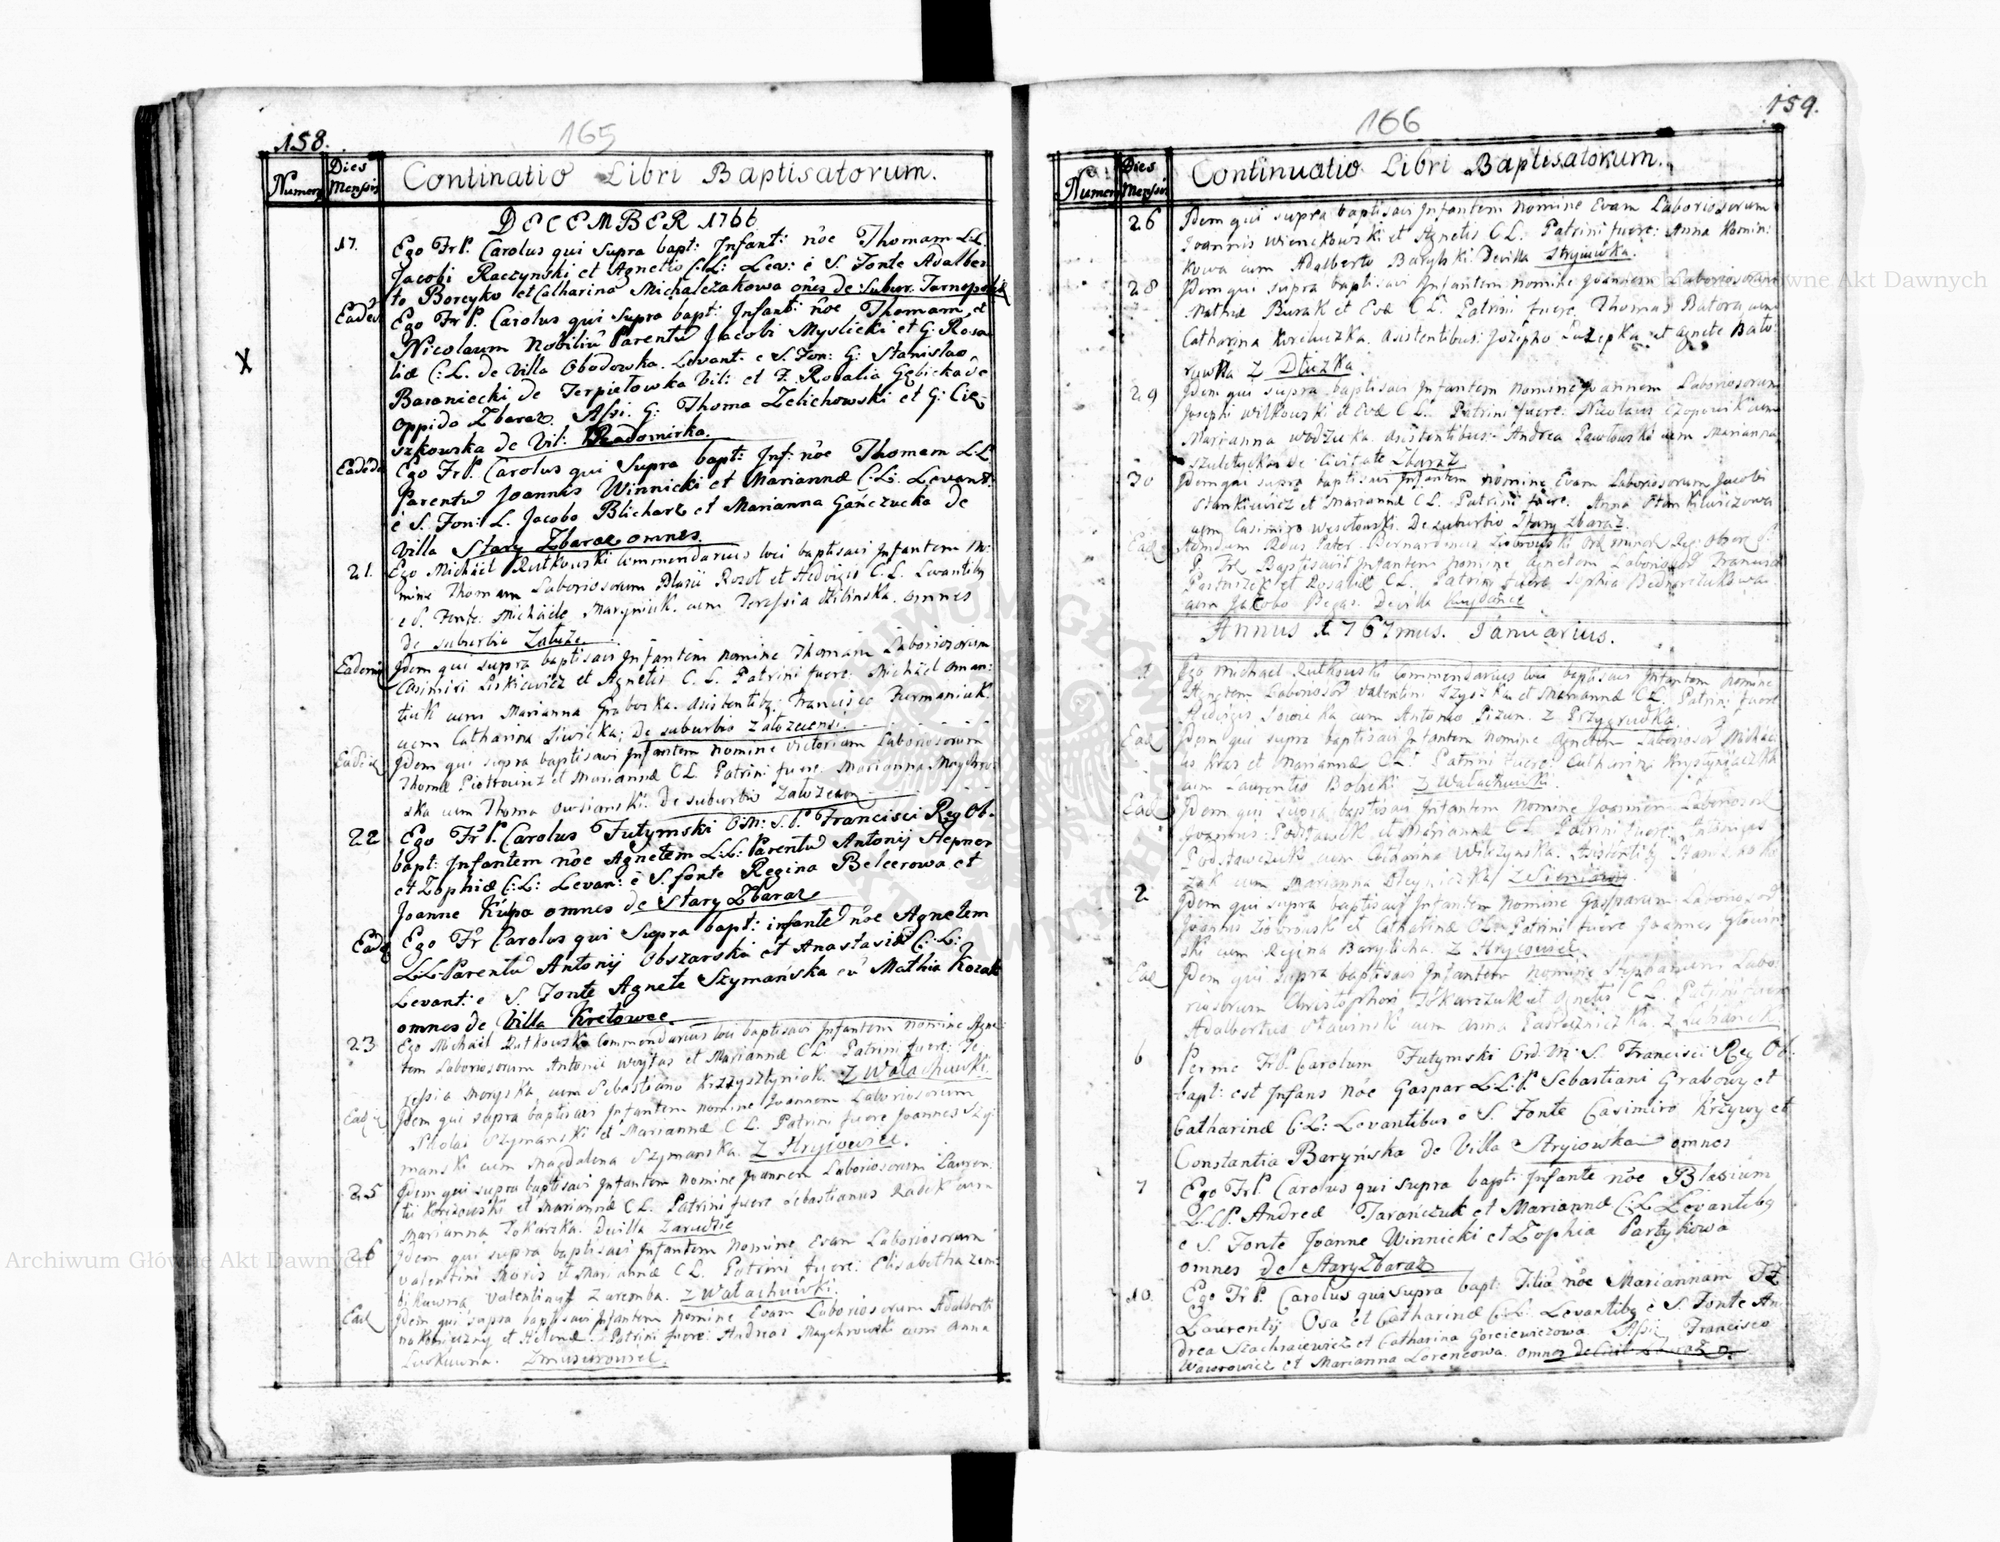 158.
165
Numerus Dies Mensis Continatio Libri Baptisatorum.
DECEMBER 1766
17. Ego Fr P. Carolus qui Supra bapt: Infant: nōe Thomam L.L.
Jacobi Raczynski et Agnetis C.L: Lev: è S. Fonte Adalber
to Boreyko et Catharina Michalczakowa oñes de Subur. Tarnopolsk
Eadem Ego Fr P. Carolus qui Supra bapt: Infant: nōe Thomam, et
Nicolaum Nobiliū Parentū Jacobi Myslicki et G: Rosa
liæ C:L. de Villa Obodowka. Levant: e S. Fon: G: Stanislao
Baraniecki de Terpiełowka Vil: et G. Rosalia Gębicka de
oppido Zbaraz. Assi. G: Thoma Zelichowski et G: Cie
szkowska de Vil: Kradomirka.
Eadē die Ego Fr P. Carolus qui Supra bapt: Inf: nōe Thomam L.L
Parentū Joannis Winnicki et Mariannæ C:L: Levant:
è S. Fon: L. Jacobo Blicharz et Marianna Gańczucka de
Villa Stary Zbaraz omnes.
21. Ego Michäel Rutkowski Commendarius loci baptisavi Infantem No:
mine Thomam Laboriosorum Blasii Rozot et Hedvigis C.L. Levantiby
e S. Fonte Michäele Maryniuk. cum Teressia Zilinska. omnes
de suburbia Załuże
Eadem Idem qui supra baptisavi Infantem nomine Thomam Laboriosorum
Casimiri Liskiewicz et Agnetis C. L. Patrini fuere Michäel Oman:
tiuk cum Marianna Graborka. Asistentiby Francisco Furmaniuk.
cum Catharina Siwicka; De suburbio Załozcensi.
Eadē Idem qui supra baptisavi Infantem nomine Victoriam Laboriosorum
Thomæ Piotrowicz et Mariannæ CL. Patrini fuere. Marianna Maychro
ska cum Thoma Owsianski. De suburbio Załozcensi
22 Ego Fr P. Carolus Futymski Ord: M: S. P. Francisci Reg Ob.
bapt: Infantem nōe Agnetem L:L: Parentū Antonij Hepner
et Zophiæ C:L: Levan: è S. fonte Regina Belcerowa et
Joanne Kupa omnes de Stary Zbaraz
Eadē Ego Fr Carolus qui Supra bapt: infantē nōe Agnetem
L:L: Parentū Antonij Obszarski et Anastasiæ C:L:
Levant: e S. Fonte Agnete Szymańska cū Mathia Kozak
omnes de Villa Kretowce
23 Ego Michäel Rutkowski Commendarius loci baptisavi Infantem nomine Agne
tem Laboriosorum Antonii Woytas et Mariannæ CL. Patrini fuere: Te
ressia Moryska, cum Sebastiano Krzysztyniak. Z Walachuwki.
Ead Idem qui supra baptisavi Infantem nomine Joannem Laboriosorum
Nikolai Szymanski et Mariannæ C L. Patrini fuere Joannes Szy
manski cum Magdalena Szymanska. Z Hryiowiec.
25 Idem qui supra baptisavi Infantem nomine Joannem Laboriosorum Lauren:
tii et Mariannæ CL. Patrini fuere Sebastianus Radek cum
Marianna Tokarzka. Devilla Zarudzie
26 Idem qui supra baptisavi Infantem nomine Evam Laboriosorum
Valentini Moris et Mariannæ CL. Patrini fuere: Elisabetha zem:
bikuwna, Valentinus Zaremba. Z Walachuwki.
Ead Idem qui supra baptisavi Infantem nomine Evam Laboriosorum Adalberti
na Konieczny et Helenæ. Patrini fuere: Andreas Maychrowski cum Anna
Luskuwna. Zmusurowiec.
159.
166
Numerus Dies Mensis Continuatio Libri Baptisatorum.
26 Idem qui supra baptisavi Infantem nomine Evam Laboriosorum
Joannis Wienckowski et Agnetis CL. Patrini fuere: Anna Komin:
kowa cum Adalberto Barylski Devilla Stryiuwka.
28 Idem qui supra baptisavi Infantem nomine Joannem Laboriosorum
Mathiæ Burak et Evæ CL. Patrini fuere, Thomas Batora cum
Catharina Kiriluczka. Asistentibus: Josepho et Agnete Bato:
ruwka Z Dłużka.
29 Idem qui supra baptisavi Infantem nomine Joannem Laboriosorum
Josephi Witkowski et Evæ CL. Patrini fuere: Nicolaus Czopowik cum
Marianna Wodzicka. Asistentibus: Andrea Pawłowski cum Marianna
De Civitate Zbaraż
30 Idem qui supra baptisavi Infantem nomine Evam Laboriosorum Jacobi
Stankiewicz et Mariannæ CL. Patrini fuere: Anna Stankiewiczowa
cum Casimiro Wesołowski. De suburbio Stary Zbaraz.
Ead Admdum Rdus Pater Bernardinus Ord minor Reg: Obser S.
P. Fr Baptisavit Infantem nomine Agnetem Laboriosor Francisci
et Rosaliæ CL. Patrini fuere Sophia Bednarczukowa
cum Jakobo Begas. Devilla
Annus 1767mus. Januarius.
1 Ego Michael Rutkowski Commendarius loci baptisavi Infantem nomine
Agnetem Laboriosor Valentini Szyszka et Mariannæ CL. Patrini fuere
Hedvigis cum Antonio Pizun. Z Przygrudka
Ead Idem qui supra baptisavi Infantem nomine Agnetem Laboriosor Michae
lis et Mariannæ CL: Patrini fuere: Catharina Krystyniaczka
cum Laurentio Z Walachuwki.
Ead Idem qui supra baptisavi Infantem nomine Joannem Laboriosor
Joannis Podstawek et Mariannæ CL Patrini fuere: Antonius
Podstawczuk cum Catharina Wilczynska. Asistentiby
cum Marianna
2 Idem qui supra baptisavi Infantem nomine Gasparum Laboriosor
Joannis et Catharinæ CL. Patrini fuere Joannes Głowin
ski cum Regina Barylicha. Z Hryiowiec.
Ead Idem qui supra baptisavi Infantem nomine Stephanum Labo
riosorum Christophori Tokarzuk et Agnetis CL. Patrini fuere
Adalbertus Slawinski cum Anna
6 Per me Fr P. Carolum Futymski Ord. M: S. Francisci Reg Ob.
bapt: est Infans nōe Gaspar L:L: P. Sebastiani Grabowy et
Catharinæ C:L: Levantibus è S. Fonte Casimiro Krzywy et
Constantia Baryńska de Villa Stryiowka omnes
7 Ego Fr P. Carolus qui Supra bapt: Infante nōe Blasium
L.L.P. Andreæ Tarańczuk et Mariannæ C:L: Levantiby
e S. Fonte Joanne Winnicki et Zophia Partykowa
omnes de Stary Zbaraz
10 Ego Fr P. Carolus qui Supra bapt: Filiā nōe Mariannam FF
Laurentij Osa et Catharinæ C:L: Levantiby è S. Fonte An
drea Szachniewicz et Catharina Gorciewiczowa Assi: Francisco
Waworowicz et Marianna Lorencowa. omnes de Civit Zbaraz
Archiwum Główne Akt Dawnych